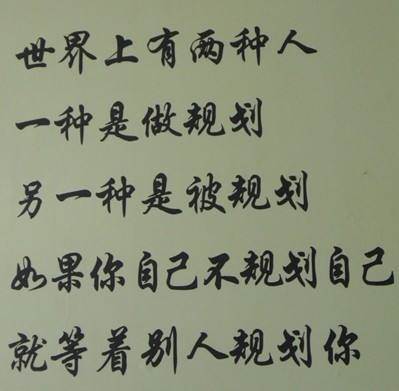 世界上有两种人
一种是做规划
另一种是被规划
如果你自己不规划自己
就等着别人规划你